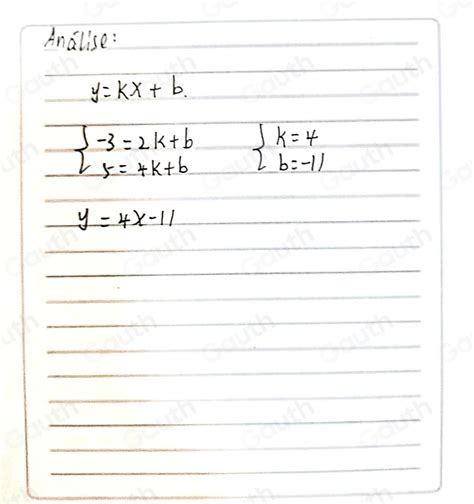 Análise:
y=kx+b.
{-3=2k+b {k=4
{5=4k+b {b=-11
y=4x-11